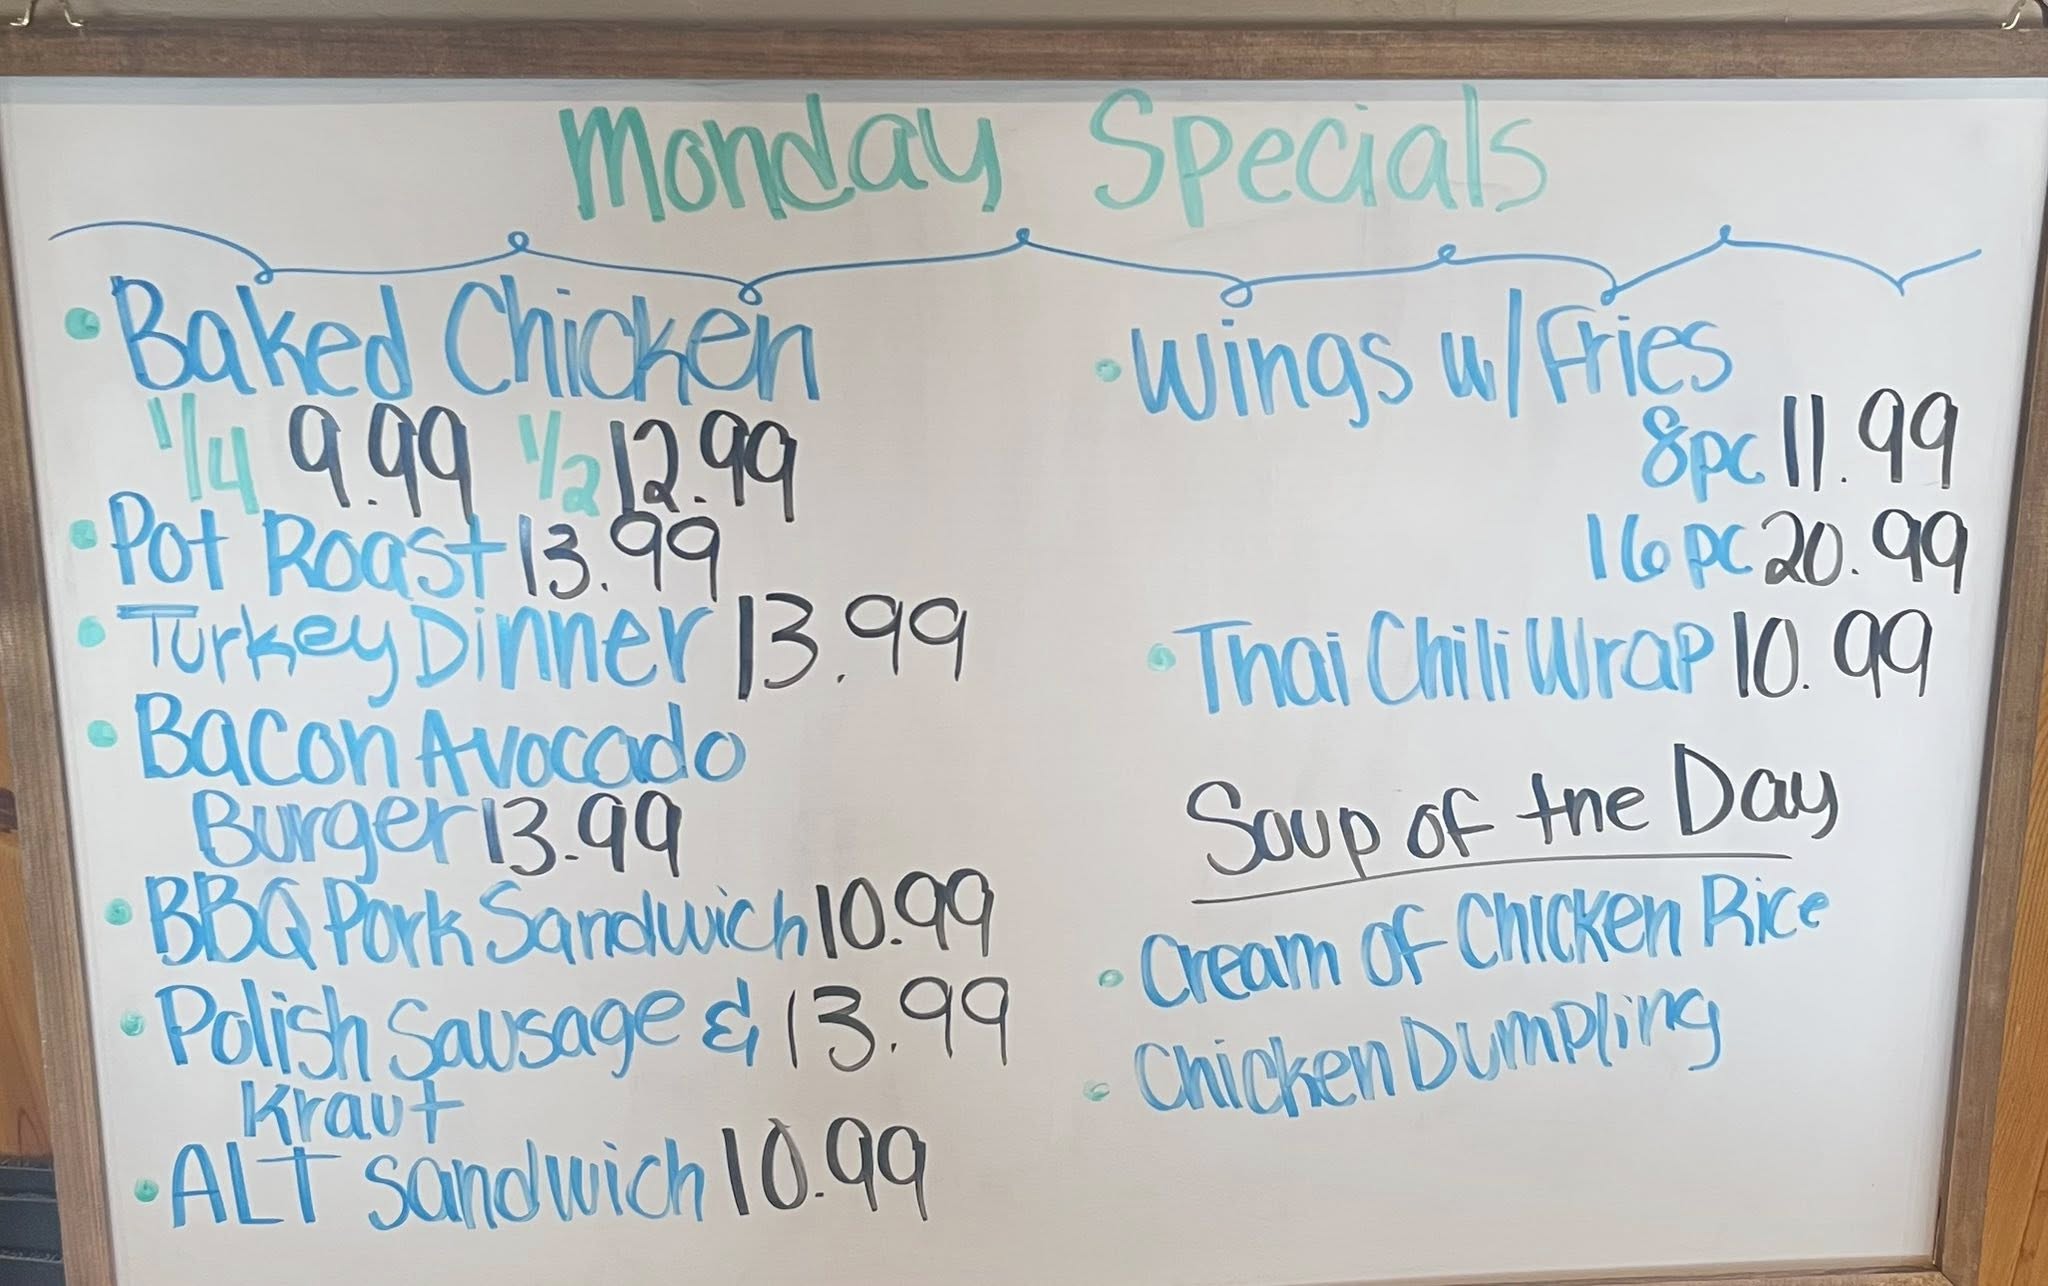 Monday Specials
• Baked Chicken
1/4 9.99 1/2 12.99
• Pot Roast 13.99
• Turkey Dinner 13.99
• Bacon Avocado
Burger 13.99
• BBQ Pork Sandwich 10.99
• Polish Sausage & 13.99
Kraut
• ALT Sandwich 10.99
• Wings w/ Fries
8pc 11.99
16pc 20.99
• Thai Chili Wrap 10.99
Soup of the Day
• Cream of Chicken Rice
• Chicken Dumpling